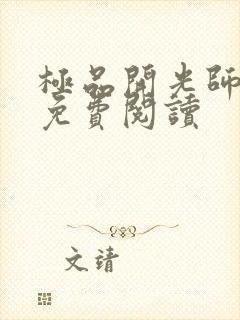 極品開光師
免費閱讀
文靖